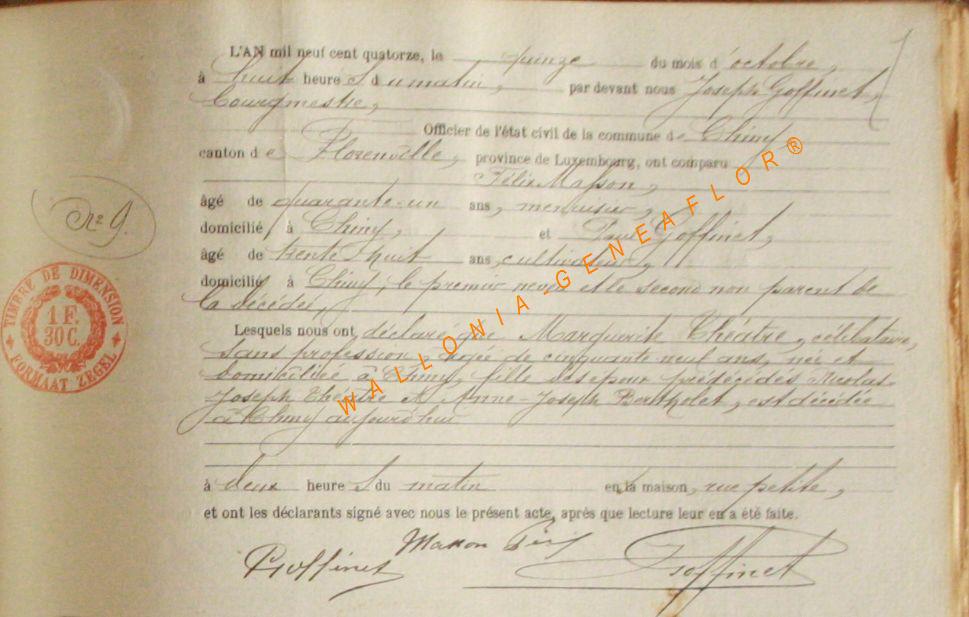 L'AN mil neuf cent quatorze, le quinze du mois d'octobre,
à huit heures du matin, par devant nous Joseph Goffinet,
bourgmestre,
Officier de l'état civil de la commune de Chiny
canton de Florenville, province de Luxembourg, ont comparu
Félix Masson,
âgé de quarante-un ans, menuisier,
N° 9.
domicilié, à Chiny, et Paul Goffinet,
âgé de trente huit ans, cultivateur,
domicilié à Chiny, le premier neveu et le second non parent de
la décédée,
Lesquels nous ont déclaré que Marguerite Théatre, célibataire,
sans profession, agée de cinquante neuf ans, née et
domiciliée à Chiny, fille des époux prédécédés Nicolas-
Joseph Théatre et Anne-Joseph Bertholet, est décédée
à Chiny aujourd'hui
à deux heures du matin en la maison, rue petite,
et ont les déclarants signé avec nous le présent acte, après que lecture leur en a été faite.
Masson Félix
Goffinet Goffinet
TIMBRE DE DIMENSION
1 F.
30 C.
FORMAAT ZEGEL
WALLONIA-GENEAFLOR®